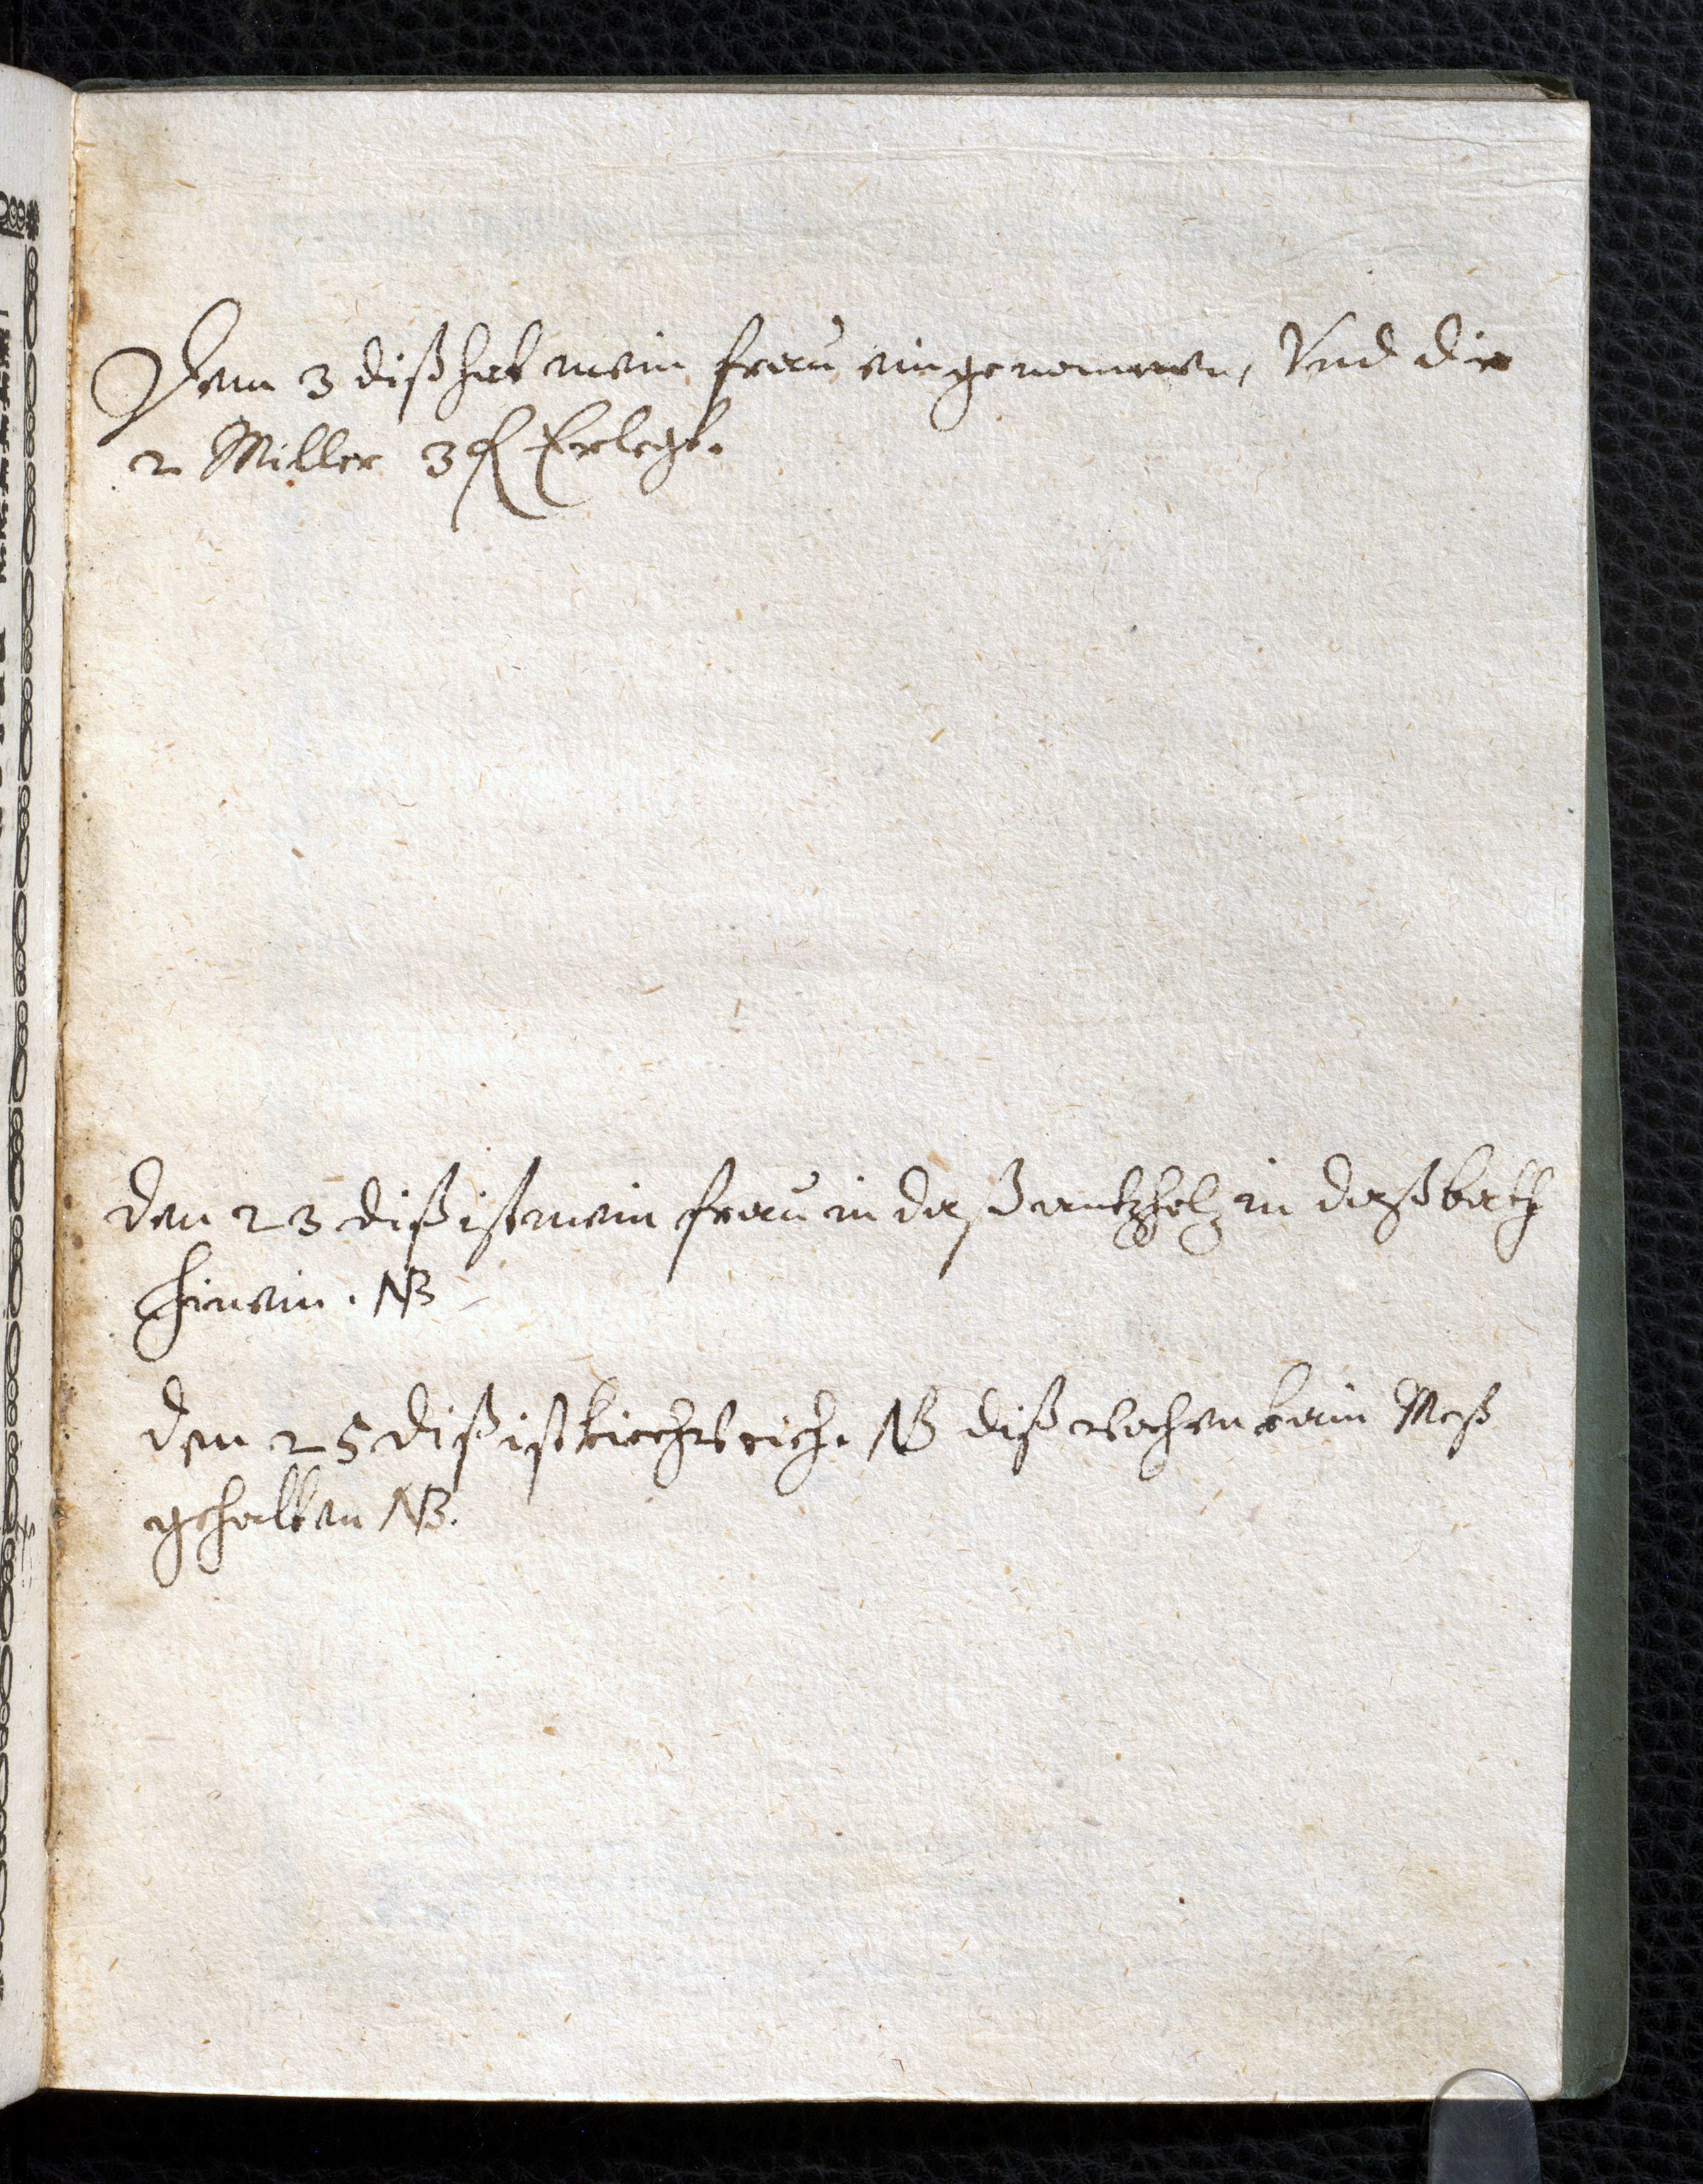 Denn 3 diß hat mein frau eingenommen, Vnd die
2 Miller 3 fl Erlegt.
den 23 diß ist mein frau in daß antzholz in daß bath
hinein. NB
den 25 diß ist kirchweich. NB diß wochen kain Meß
gehalten NB.